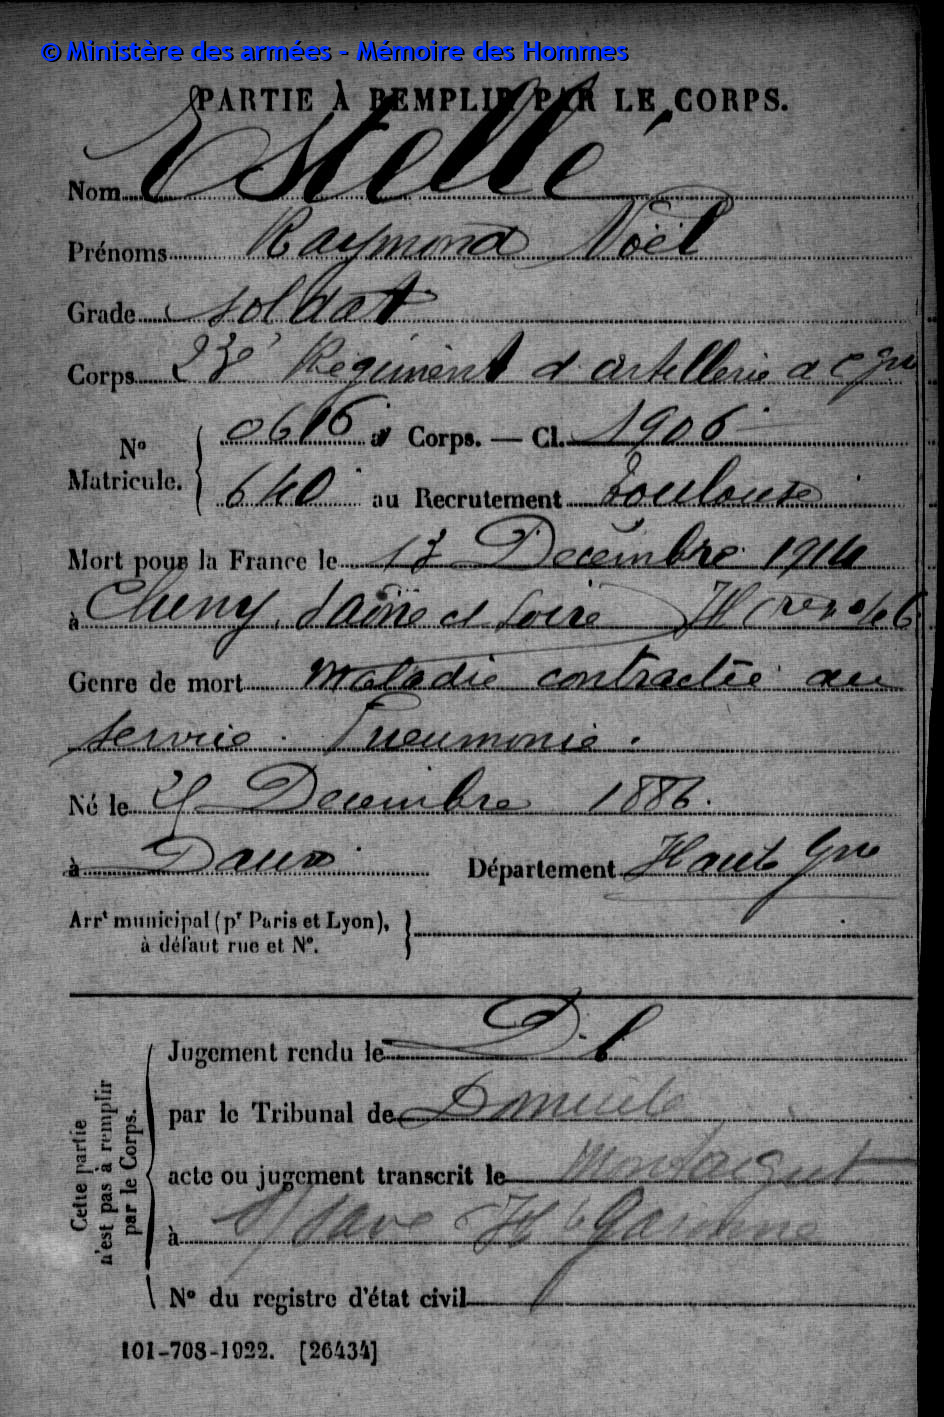 © Ministère des armées - Mémoire des Hommes
PARTIE À REMPLIR PAR LE CORPS.
Nom Estellé
Prénoms Raymond Noël
Grade soldat
Corps 23e Régiment d'artillerie de Cgne
Nº Matricule. 0616 au Corps. — Cl. 1906
640 au Recrutement Toulouse
Mort pour la France le 13 Décembre 1914
à Cluny, Saône et Loire
Genre de mort Maladie contractée au
service. Pneumonie.
Né le 25 Decembre 1886.
à Daux Département Haute Gne
Arrt municipal (pr Paris et Lyon),
à défaut rue et Nº.
Cette partie
n'est pas à remplir
par le Corps.
Jugement rendu le
par le Tribunal de Domicile
acte ou jugement transcrit le Montaigut
à s/ Save Hte Garonne
Nº du registre d'état civil
101-708-1922. [26434]